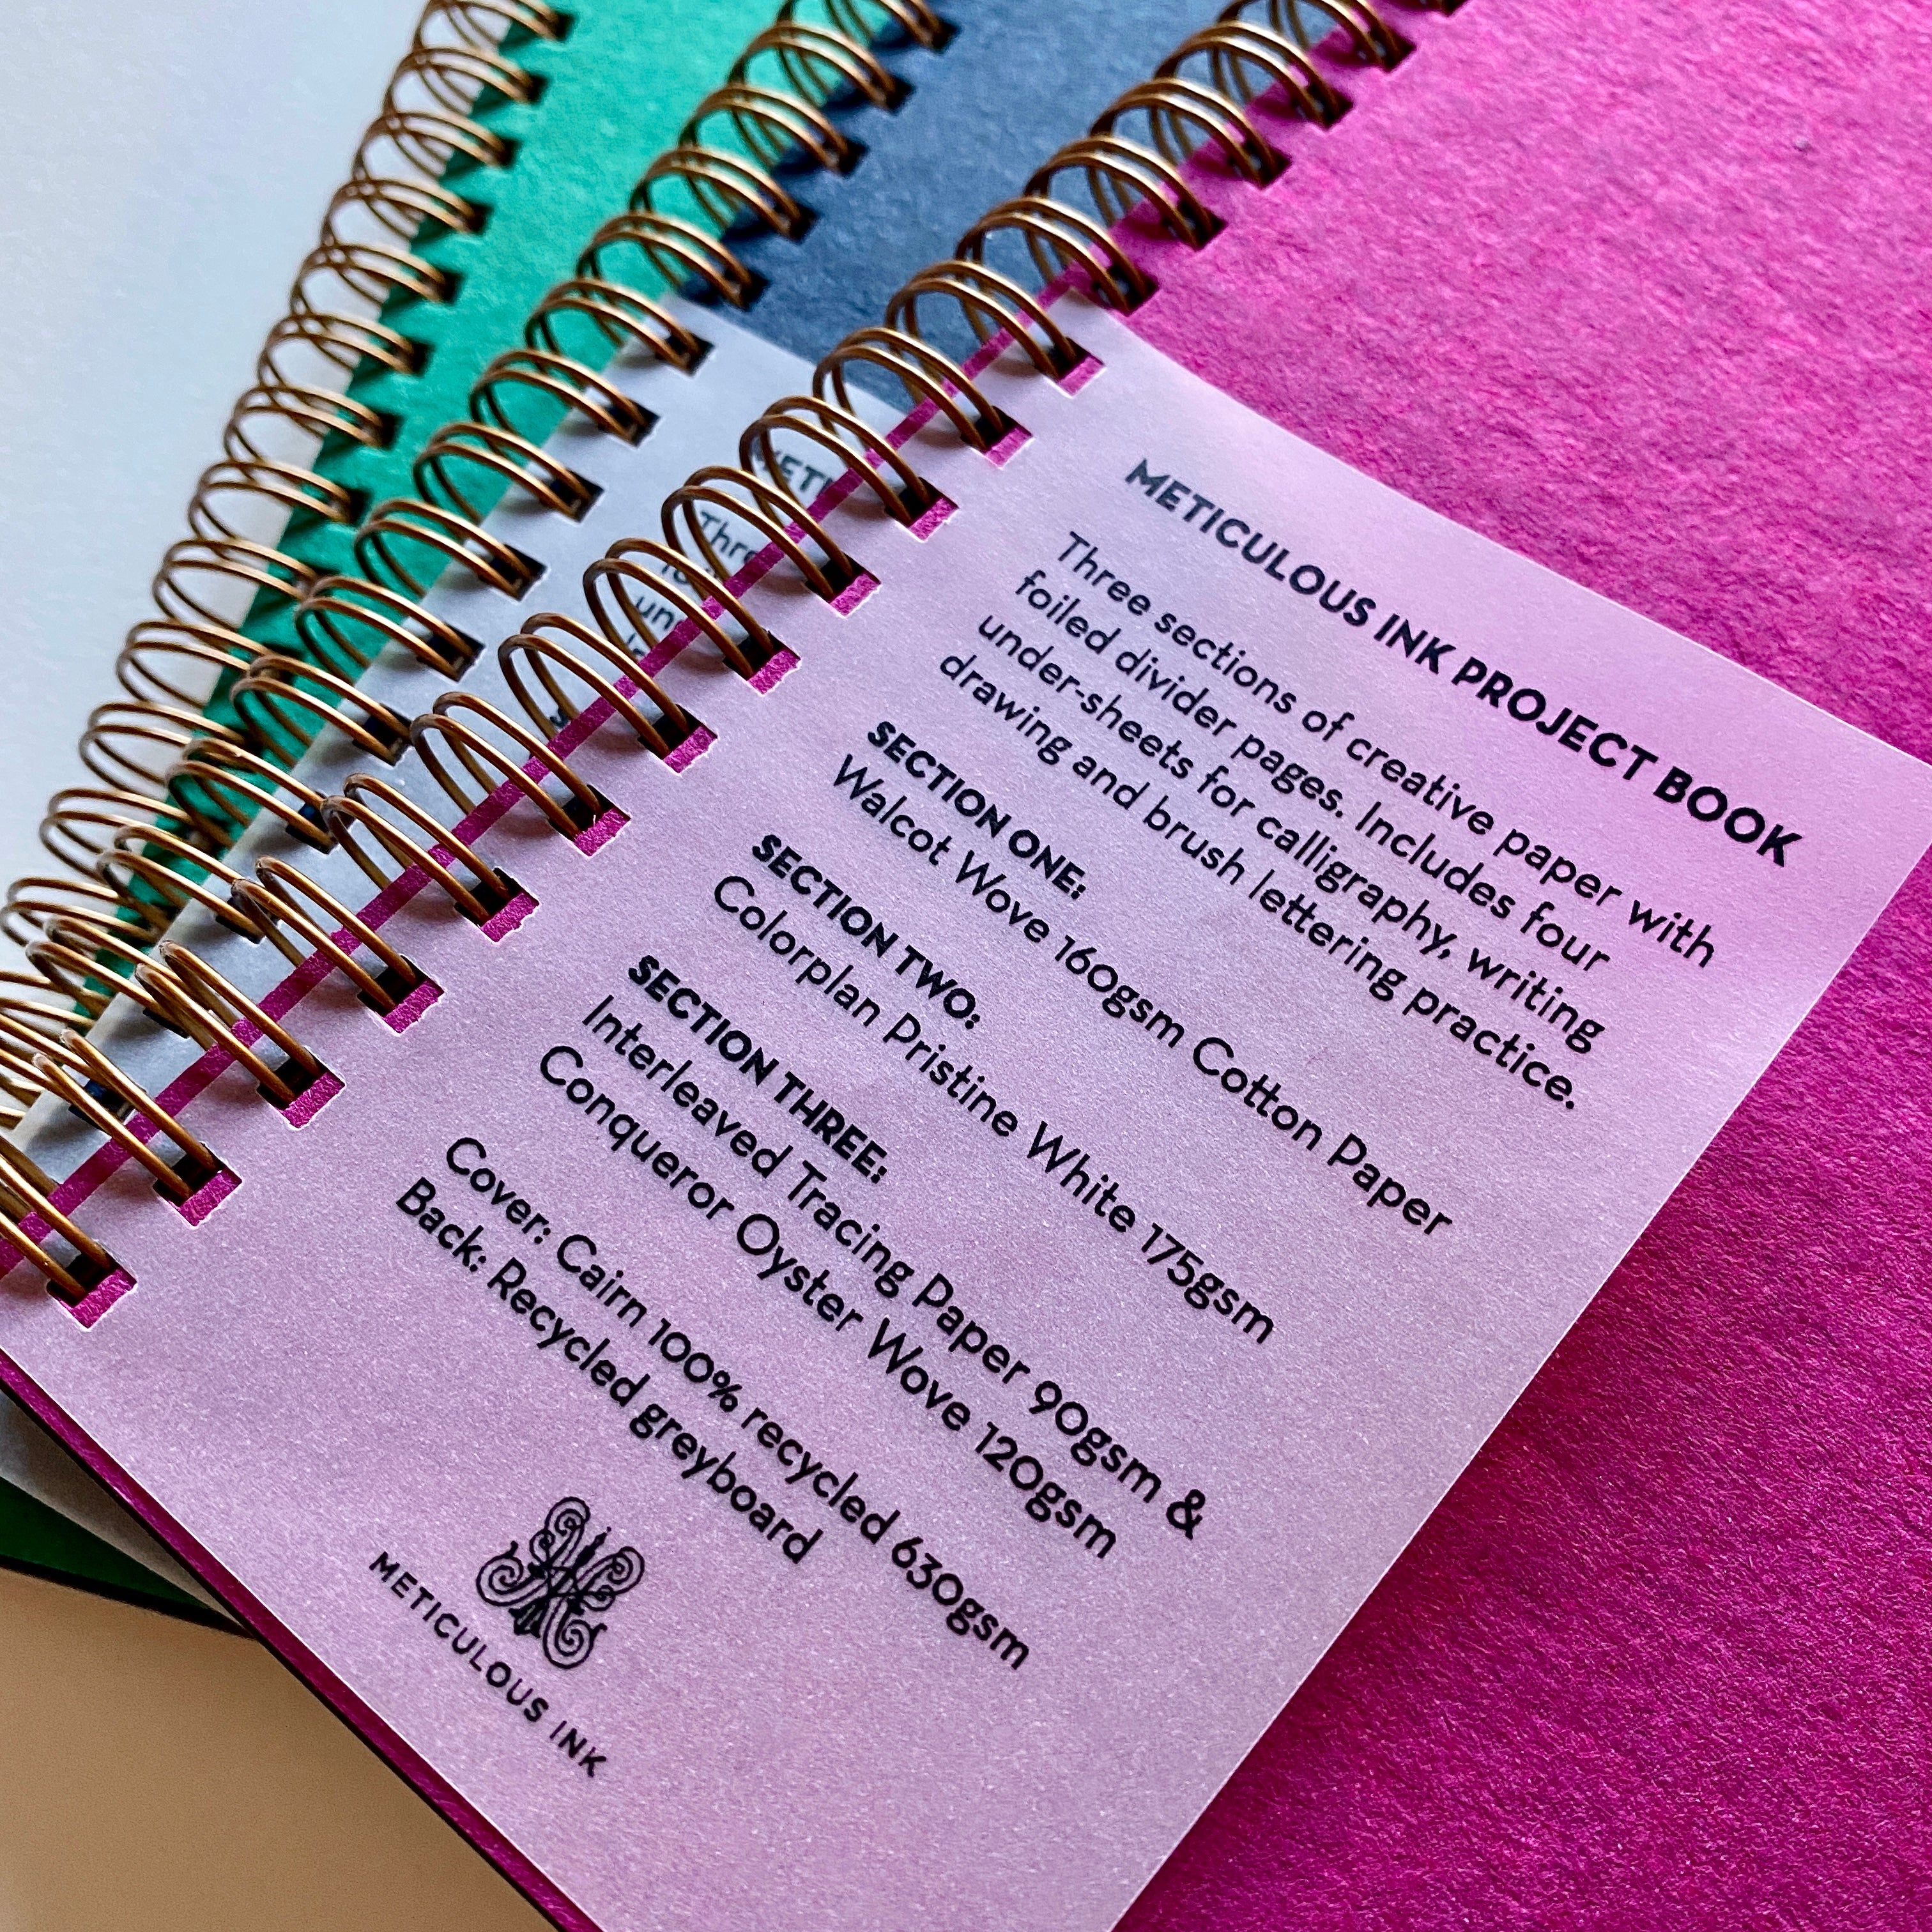 METICULOUS INK PROJECT BOOK
Three sections of creative paper with
foiled divider pages. Includes four
under-sheets for calligraphy, writing
drawing and brush lettering practice.
SECTION ONE:
Walcot Wove 160gsm Cotton Paper
SECTION TWO:
Colorplan Pristine White 175gsm
SECTION THREE:
Interleaved Tracing Paper 90gsm &
Conqueror Oyster Wove 120gsm
Cover: Cairn 100% recycled 630gsm
Back: Recycled greyboard
METICULOUS INK